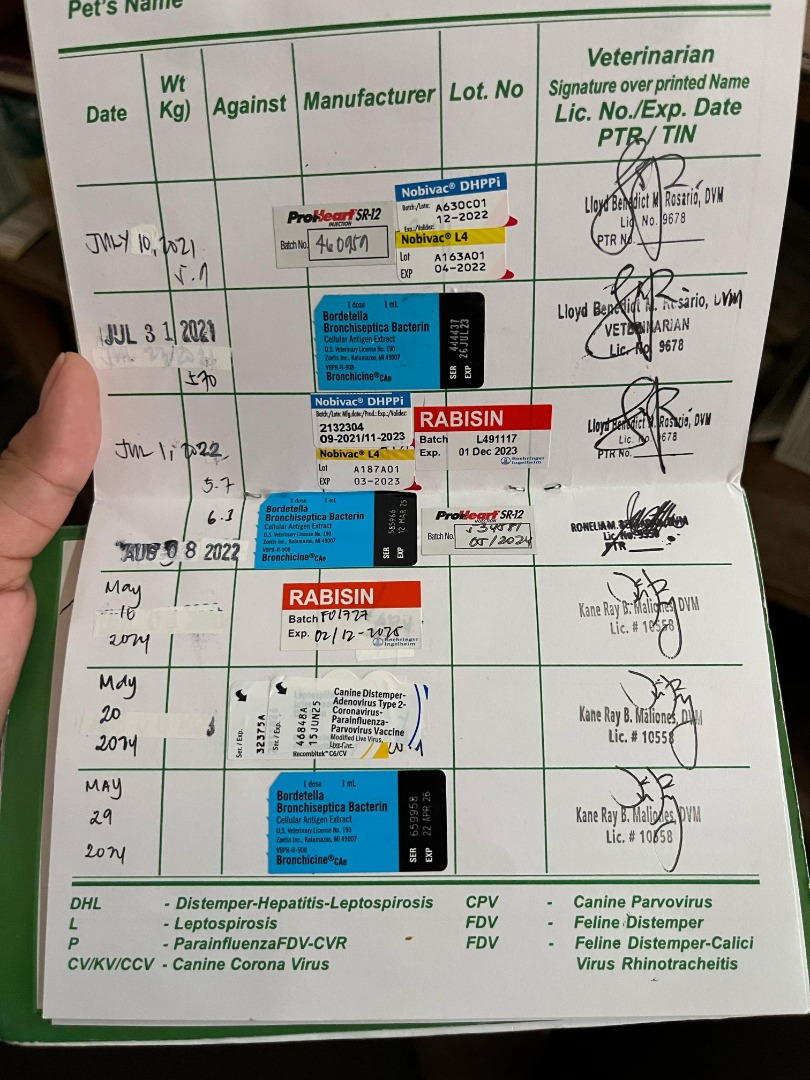 Pet's Name
Date
Wt
Kg)
Against
Manufacturer
Lot. No
Veterinarian
Signature over printed Name
Lic. No./Exp. Date
PTR / TIN
JULY 10, 2021
5.9
ProHeart SR-12
INJECTION
Batch No.
Nobivac® DHPPi
A630C01
12-2022
Nobivac® L4
Lot A163A01
EXP 04-2022
Lloyd Benedict M. Rosario, DVM
Lic No. 9678
PTR No.
JUL 31 2021
5.70
1 dose 1 mL
Bordetella
Bronchiseptica Bacterin
Cellular Antigen Extract
U.S. Veterinary License No. 190
Zoetis Inc., Kalamazoo, MI 49007
VBPR-R-908
Bronchicine®CAe
SER 444437
EXP 26 JUL 23
Lloyd Benedict M. Rosario, DVM
VETERINARIAN
Lic. No. 9678
JUL 1, 2022
5.7
Nobivac® DHPPi
2132304
09-2021/11-2023
Nobivac® L4
Lot A187A01
EXP 03-2023
RABISIN
Batch L491117
Exp. 01 Dec 2023
Boehringer
Ingelheim
Lloyd Benedict M. Rosario, DVM
Lic. No. 9678
PTR No.
6.3
AUG 08 2022
1 dose 1 mL
Bordetella
Bronchiseptica Bacterin
Cellular Antigen Extract
U.S. Veterinary License No. 190
Zoetis Inc., Kalamazoo, MI 49007
VBPR-R-908
Bronchicine®CAe
SER 585966
EXP 12 MAR 25
ProHeart SR-12
INJECTION
Batch No.
05/2024
RONELIA M.
PTR
May
16
2024
RABISIN
Batch F01727
Exp. 02/12-2025
Boehringer
Ingelheim
Kane Ray B. Maliones, DVM
Lic. # 10558
May
20
2024
Ser./Exp. 32375A
Ser./Exp. 46848A
15JUN25
Canine Distemper-
Adenovirus Type 2-
Coronavirus-
Parainfluenza-
Parvovirus Vaccine
Modified Live Virus,
Recombitek™ C6/CV
Kane Ray B. Maliones, DVM
Lic. # 10558
MAY
29
2024
1 dose 1 mL
Bordetella
Bronchiseptica Bacterin
Cellular Antigen Extract
U.S. Veterinary License No. 190
Zoetis Inc., Kalamazoo, MI 49007
VBPR-R-908
Bronchicine®CAe
SER 659958
EXP 22 APR 26
Kane Ray B. Maliones, DVM
Lic. # 10558
DHL - Distemper-Hepatitis-Leptospirosis CPV - Canine Parvovirus
L - Leptospirosis FDV - Feline Distemper
P - ParainfluenzaFDV-CVR FDV - Feline Distemper-Calici
CV/KV/CCV - Canine Corona Virus Virus Rhinotracheitis